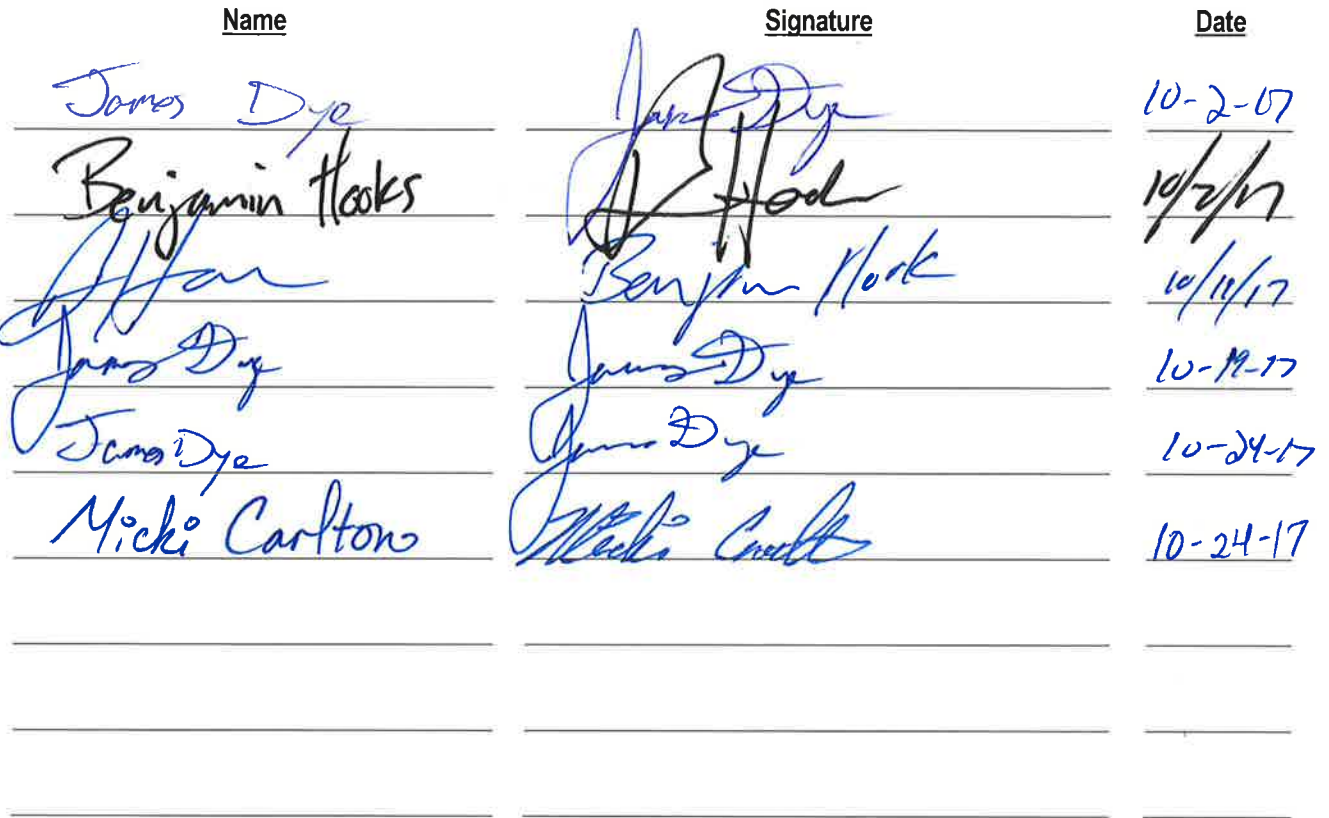 Name Signature Date
James Dye James Dye 10-2-17
Benjamin Hooks 10/2/17
Benjamin Hook 10/11/17
James Dye James Dye 10-19-17
James Dye James Dye 10-24-17
Micki Carlton Micki Carlton 10-24-17